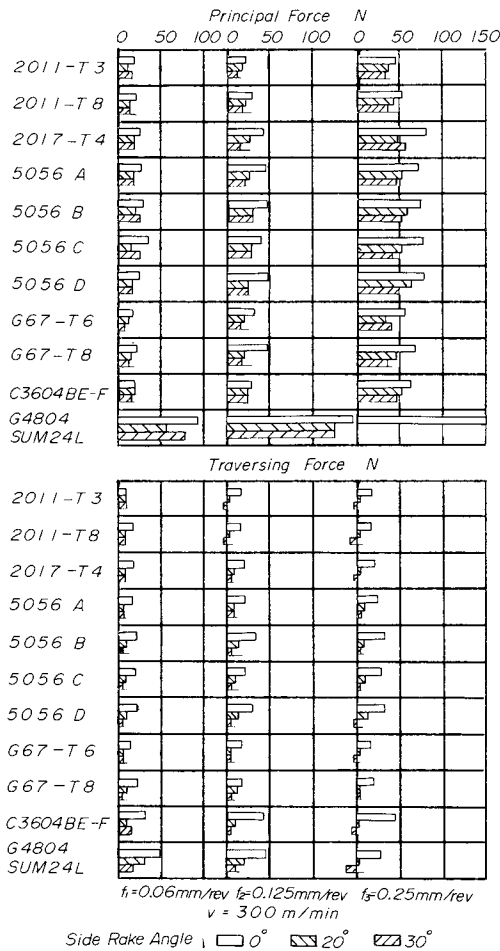 Principal Force N
0 50 100 0 50 100 0 50 100 150
2011-T3
2011-T8
2017-T4
5056 A
5056 B
5056 C
5056 D
G67-T6
G67-T8
C3604BE-F
G4804
SUM24L
Traversing Force N
0 50 100 0 50 100 0 50 100 150
2011-T3
2011-T8
2017-T4
5056 A
5056 B
5056 C
5056 D
G67-T6
G67-T8
C3604BE-F
G4804
SUM24L
f₁=0.06mm/rev f₂=0.125mm/rev f₃=0.25mm/rev
v = 300 m/min
Side Rake Angle 0° 20° 30°